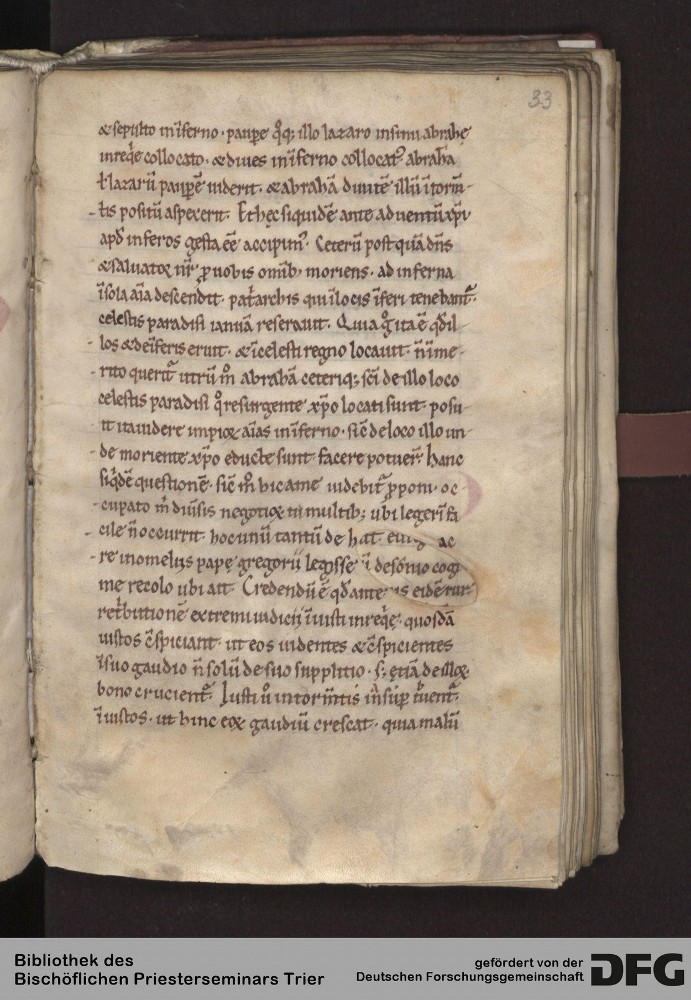 33
& sepulto inīferno · paupe q̊q; illo lazaro insinu abrahę
inreq̇e collocato · & diues inīferno collocat᷒ abrahā
ł lazarū paupē̄ uiderit · & abrahā diuitē illū ītorm̄-
tis positū aspexerit · Et hęc siquidē ante aduentū xp̄i
apđ inferos gesta eē accipim᷒ · Ceterū postquā dn̄s
& saluatoꝛ nr̄ ꝓ nobis omīb; moriens · ad inferna
īsola aīa descendit · pat̄archis qui īlocis īferi tenebant᷑ ·
celestis paradisi ianuā reserauit · Quia g̊ ita ē qđ il-
los & deīferis eruit · & īcelesti regno locauit · n̄ īme-
rito querit᷑ utrū m̊ abrahā ceteriq; sc̄i de illo loco
celestis paradisi q̊ resurgente xp̄o locati sunt · possi-
nt ita uidere impioꝝ aīas inīferno · sic̄ de loco illo un-
de moriente xp̄o educte sunt · facere potuer̄ · hanc
siq̇dē questionē · sic̄ m̊ hic a me uidebit᷑ ꝓponi · oc-
cupato m̊ diuisis negotioꝝ tumultib; ubi legerī fa-
cile n̄ occurrit · hoc unū tantū de hac
re inomeliis papę gregorii legisse
me recolo ubi ait · Credendū ē qđ ante
ret̄butionē extremi iudicii īiusti inreq̇ę · quosdā
iustos c̄spiciant · ut eos uidentes & c̄spicientes
īsuo gaudio n̄ solū de suo supplitio · s; etiā de illoꝝ
bono crucient᷑ · Iusti ů intorm̄tis
īiustos · ut hinc eoꝝ gaudiū crescat · quia malū
Bibliothek des
Bischöflichen Priesterseminars Trier
gefördert von der
Deutschen Forschungsgemeinschaft
DFG